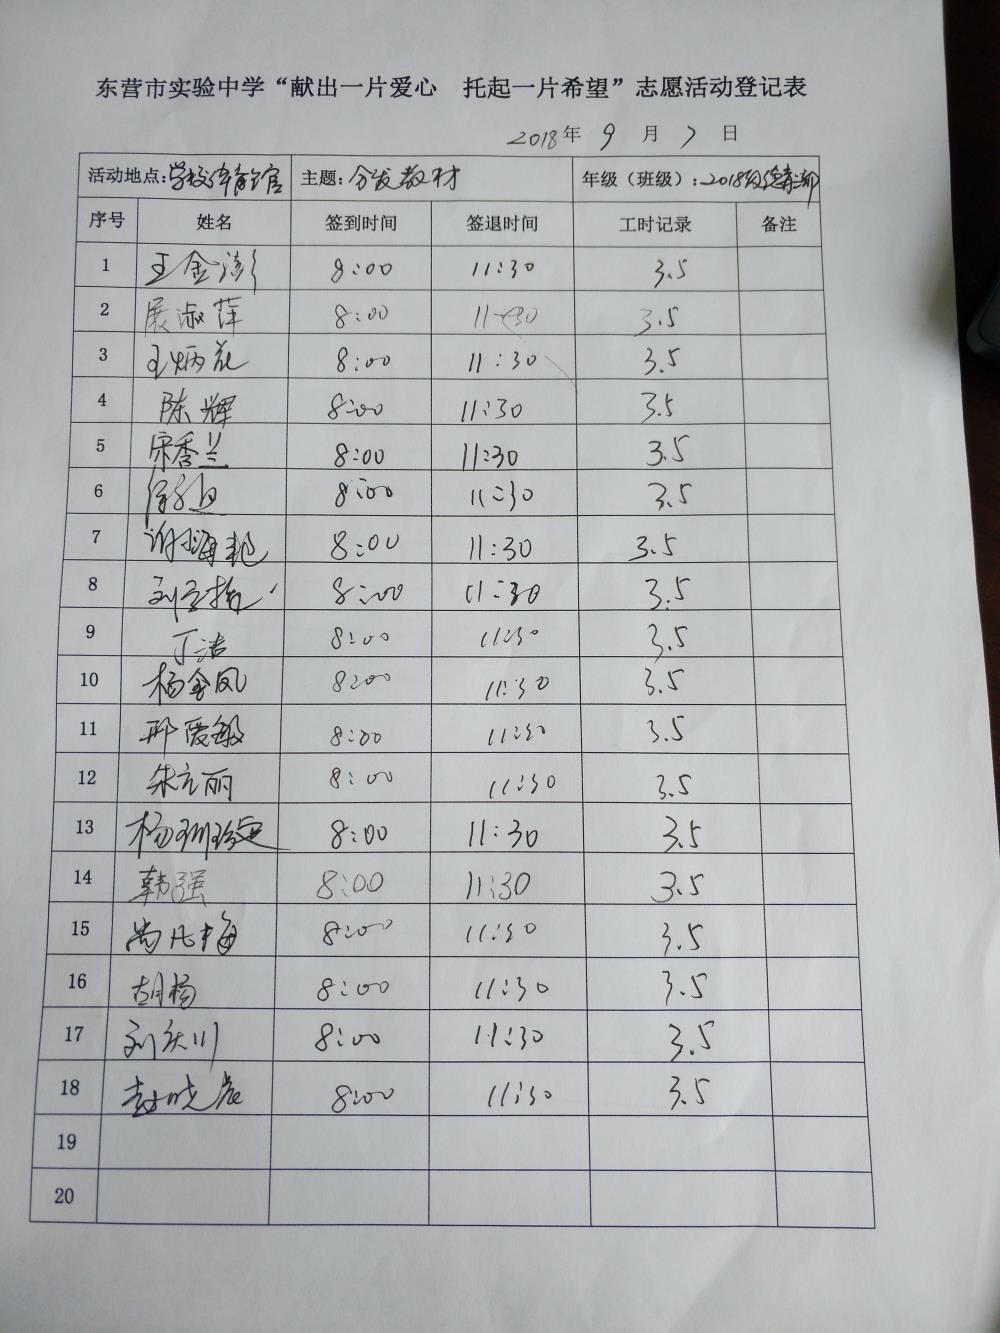 东营市实验中学“献出一片爱心 托起一片希望”志愿活动登记表
2018年 9 月 7 日
活动地点:学校体育馆 主题:分发教材 年级（班级）:2018级德育部
序号 姓名 签到时间 签退时间 工时记录 备注
1 王金 8:00 11:30 3.5
2 展淑萍 8:00 11:30 3.5
3 王炳花 8:00 11:30 3.5
4 陈辉 8:00 11:30 3.5
5 宋香兰 8:00 11:30 3.5
6 8:00 11:30 3.5
7 谢海艳 8:00 11:30 3.5
8 刘 8:00 11:30 3.5
9 丁洁 8:00 11:30 3.5
10 杨金凤 8:00 11:30 3.5
11 邢爱敏 8:00 11:30 3.5
12 朱立丽 8:00 11:30 3.5
13 杨 8:00 11:30 3.5
14 韩强 8:00 11:30 3.5
15 尚凡梅 8:00 11:30 3.5
16 胡杨 8:00 11:30 3.5
17 刘庆川 8:00 11:30 3.5
18 赵晓 8:00 11:30 3.5
19
20